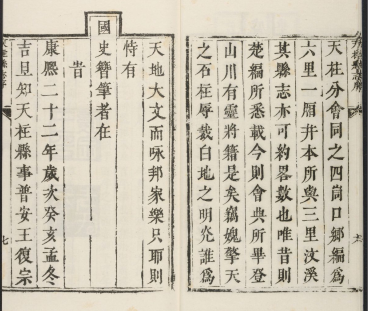 天柱分會同之四啚口鄉編為
六里一厢并本所與三里汶溪
其縣志亦可約畧數也唯昔則
楚編所悉載今則會典所畢登
山川有靈將籍是矣竊媿擎天
之石柱辱裁白地之明光誰為
天地大文而咏邦家樂只耶則
恃有
國史簪筆者在
旹
康熙二十二年歲次癸亥孟冬
吉旦知天柱縣事普安王復宗
七